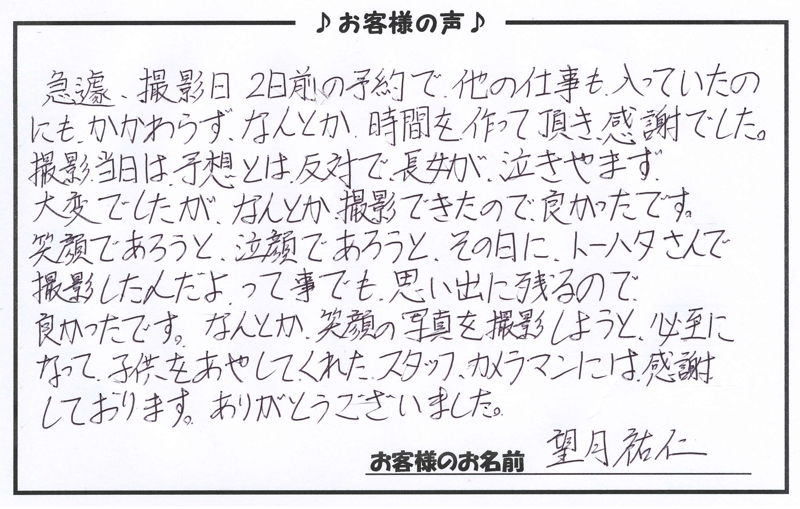 ♪お客様の声♪
急遽、撮影日 2日前の予約で、他の仕事も、入っていたの
にも、かかわらず なんとか、時間を、作って頂き、感謝でした。
撮影当日は、予想とは、反対で、長女が、泣きやまず、
大変でしたが、なんとか、撮影できたので、良かったです。
笑顔であろうと、泣顔であろうと、その日に、トーハタさんで
撮影したんだよ、って事でも、思い出に残るので、
良かったです。なんとか、笑顔の写真を撮影しようと、必至に
なって、子供をあやしてくれた、スタッフ、カメラマンには、感謝
しております。ありがとうございました。
お客様のお名前 望月祐仁